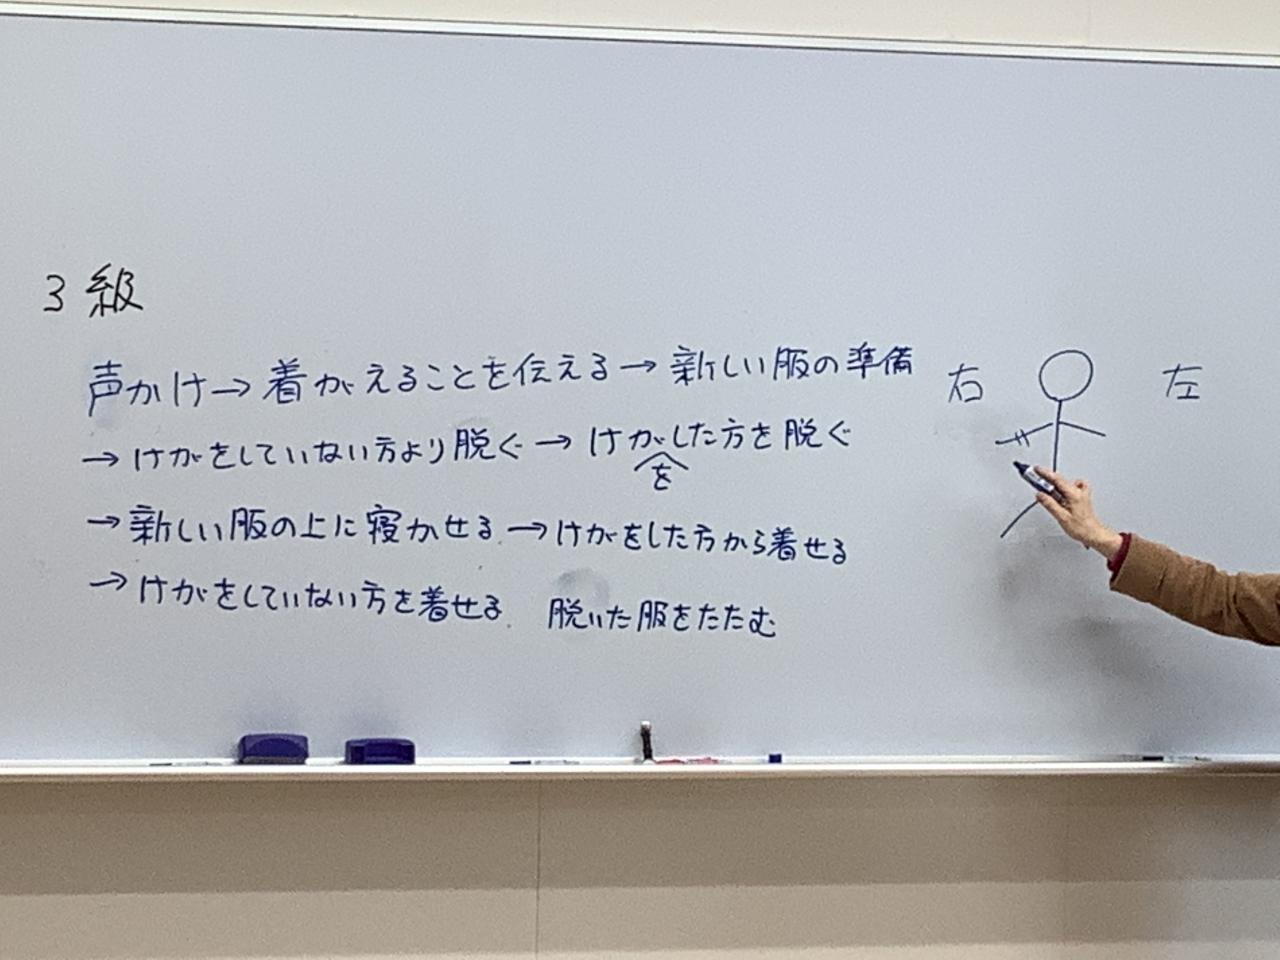 3級
声かけ→着がえることを伝える→新しい服の準備
→けがをしていない方より脱ぐ→けがをした方を脱ぐ
→新しい服の上に寝かせる→けがをした方から着せる
→けがをしていない方を着せる 脱いた服をたたむ
右 左